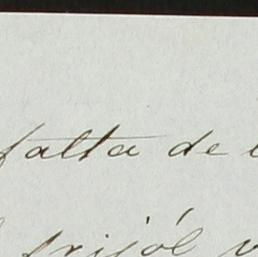 falta de
frijól